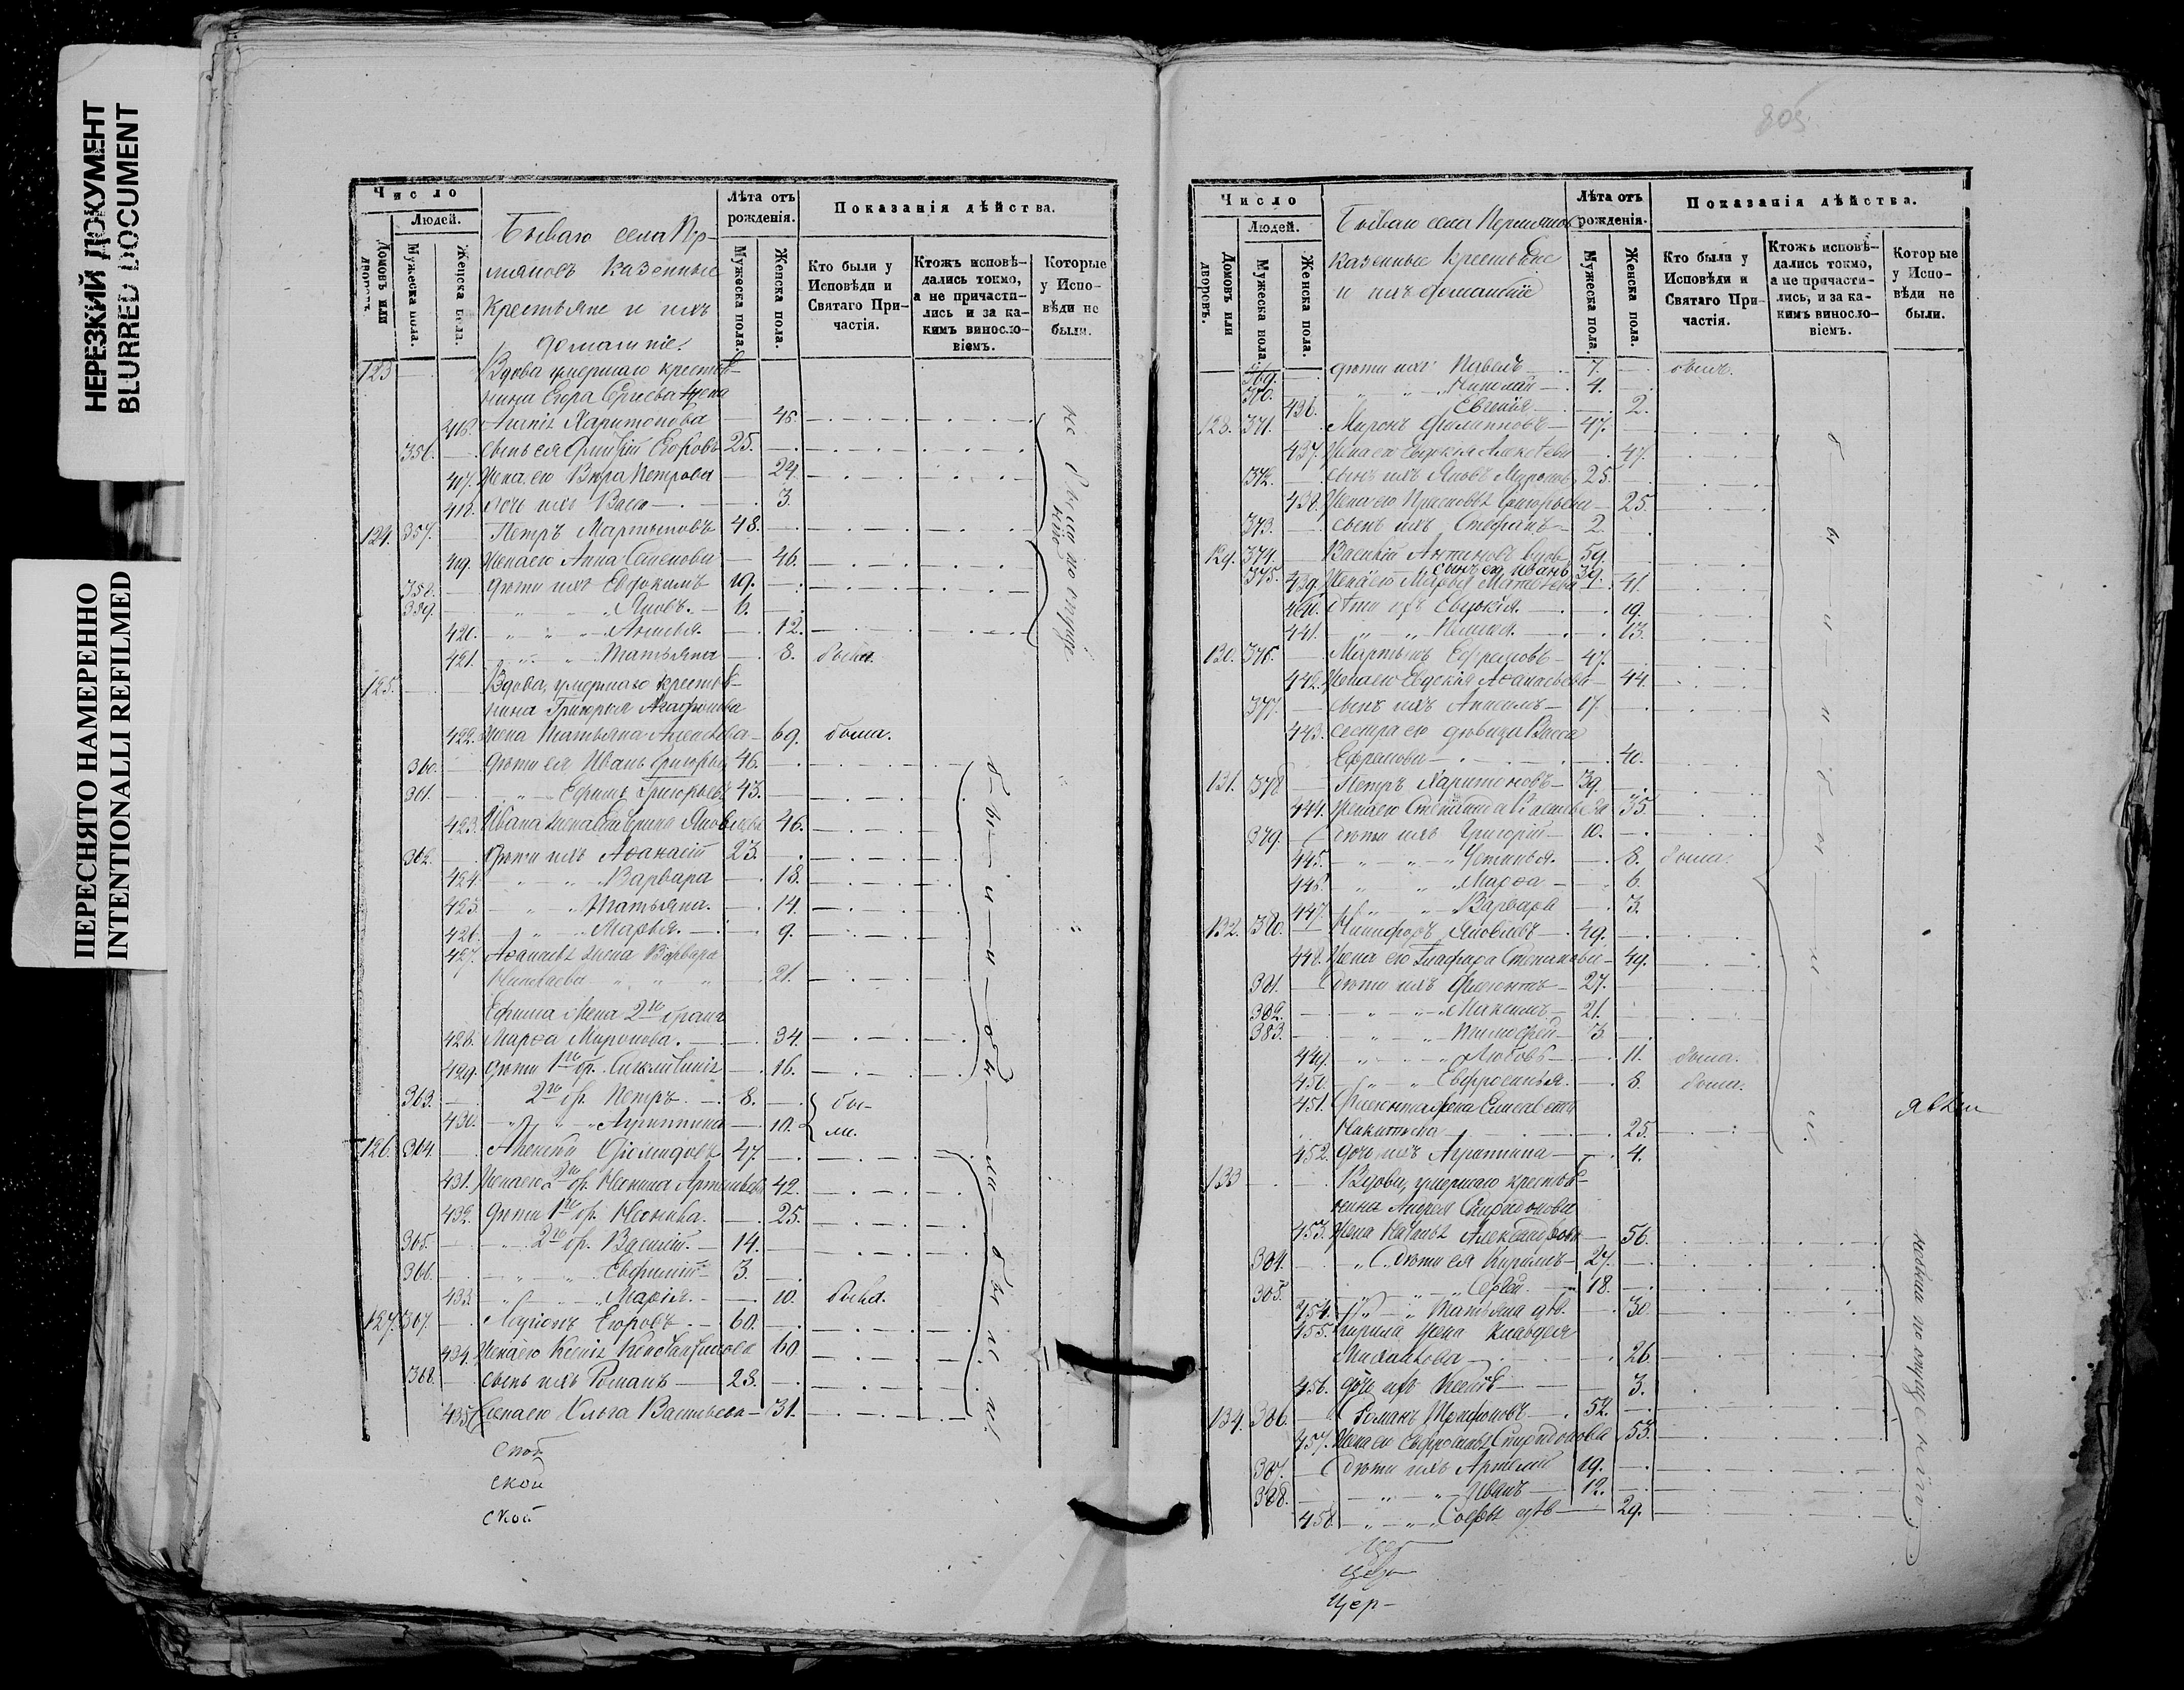 НЕРЕЗКИЙ ДОКУМЕНТ
BLURRED DOCUMENT
ПЕРЕСНЯТО НАМЕРЕННО
INTENTIONALLI REFILMED
Число
Людей.
Домовъ или дворовъ.
Мужеска пола.
Женска пола.
Бываго села Пр-
мяновъ казенные
крестьяне и ихъ
домашніе.
Лѣта отъ рожденія.
Мужеска пола.
Женска пола.
Показанія дѣйства.
Кто были у Исповѣди и Святаго При-
частія.
Ктожъ исповѣ-
дались токмо,
а не причасти-
лись и за ка-
кимъ винosло-
віемъ.
Которые у Испо-
вѣди не были.
123 Вдова умершаго крестья-
нина Егора Сергѣева жена
416. Харитонова 45.
356. сынъ ея Егоровъ 25.
417. Жена его Вѣра Петрова 24.
418. дочь ихъ Васса 3.
124. 357. Петръ Мартыновъ 48.
419. Жена его Анна Семенова 46.
358. дѣти ихъ Евдокимъ 19.
359. Яковъ. 6.
420. 12.
421. Татьяна 8. была.
125. Вдова, умершаго крестья-
нина Григорья Агафонова
422. жена Татьяна Алексѣева 69. была.
360. дѣти ея Иванъ Григорьевъ 46.
361. Ефимъ Григорьевъ 43.
423. Ивана жена Екатерина Яковлева 46.
362. дѣти ихъ Аѳанасій 23.
424. Варвара 18.
425. Татьяна. 14.
426. Марья. 9.
427. Аѳанасія жена Варвара
Николаева 21.
Ефима жена 2го брака
428. Марѳа Миронова. 34.
429. дѣти 1го бр. 16.
363. 2го бр. Петръ 8. бы-
430. Агриппина 10. ли.
126. 364. Алексѣй 47.
431. Жена его 2го бр. Артемьева 42.
432. дѣти 1го бр. 25.
365. 2го бр. Василій. 14.
366. Евфимій 3.
433. Марія. 10. была.
127. 367. Егоровъ 60.
434. Жена его Ксенія Константинова 60
368. сынъ ихъ Романъ 28.
435. жена его Ольга Васильева 31.
не были по опуще-
нію
скои
скои
скои
805.
Число
Людей.
Домовъ или дворовъ.
Мужеска пола.
Женска пола.
Бываго села Пермяновъ
казенные крестьяне
и ихъ домашніе
Лѣта отъ рожденія.
Мужеска пола.
Женска пола.
Показанія дѣйства.
Кто были у Исповѣди и Святаго При-
частія.
Ктожъ исповѣ-
дались токмо,
а не причасти-
лись, и за ка-
кимъ винosло-
віемъ.
Которые у Испо-
вѣди не были.
369. дѣти ихъ Павелъ 7. былъ.
370. Николай 4.
436. Евгенія 2.
128. 371. Миронъ Филипповъ 47.
437. Жена его Евдокія Алексѣева 47.
372. сынъ ихъ Яковъ Мироновъ 25.
438. Жена его Прасковья Григорьева 25.
373. сынъ ихъ Стефанъ 2
129. 374. Василій Антиповъ вдов. 59.
375. сынъ его Иванъ 39.
439. Жена его Марѳа Матвѣева 41.
440. дѣти ихъ Евдокія. 19.
441. 13.
130. 376. Мартынъ Ефремовъ 47.
442. Жена его Евдокія Аѳанасьева 44.
377. сынъ ихъ 17
443. сестра его дѣвица Васса
Ефремова 40.
131. 378 Петръ Харитоновъ 39.
444. Жена его Степанида 35.
379. дѣти ихъ Григорій 10.
445. Устинья. 8. была.
446. Марѳа 6.
447. Варвара 3.
132. 380. Никифоръ Яковлевъ 49.
448. Жена его Глафира Степанова 49.
381. дѣти ихъ 27.
382. Максимъ 21.
383. Тимофей 3
449. Любовь 11. была.
450. Евфросинья. 8. была.
451. жена Елисавета
Никитина 25.
452. дочь ихъ Агриппина 4.
133 Вдова, умершаго крестья-
нина Андрея Спиридонова
453. жена Наталья Александрова 56.
384. дѣти ея Кирилъ 27.
385. Сергѣй. 18.
454. Татьяна дѣв. 30.
455. Кирила жена Клавдея
Михайлова 26.
456. дочь ихъ 3.
134. 386. Романъ Трифоновъ 52.
457. Жена его Евфросинья Спиридонова 53.
387. дѣти ихъ Артемій 19.
388. Иванъ 12.
458. Софья дѣв 29.
не были по опущенію.
Цер
Цер
Цер-